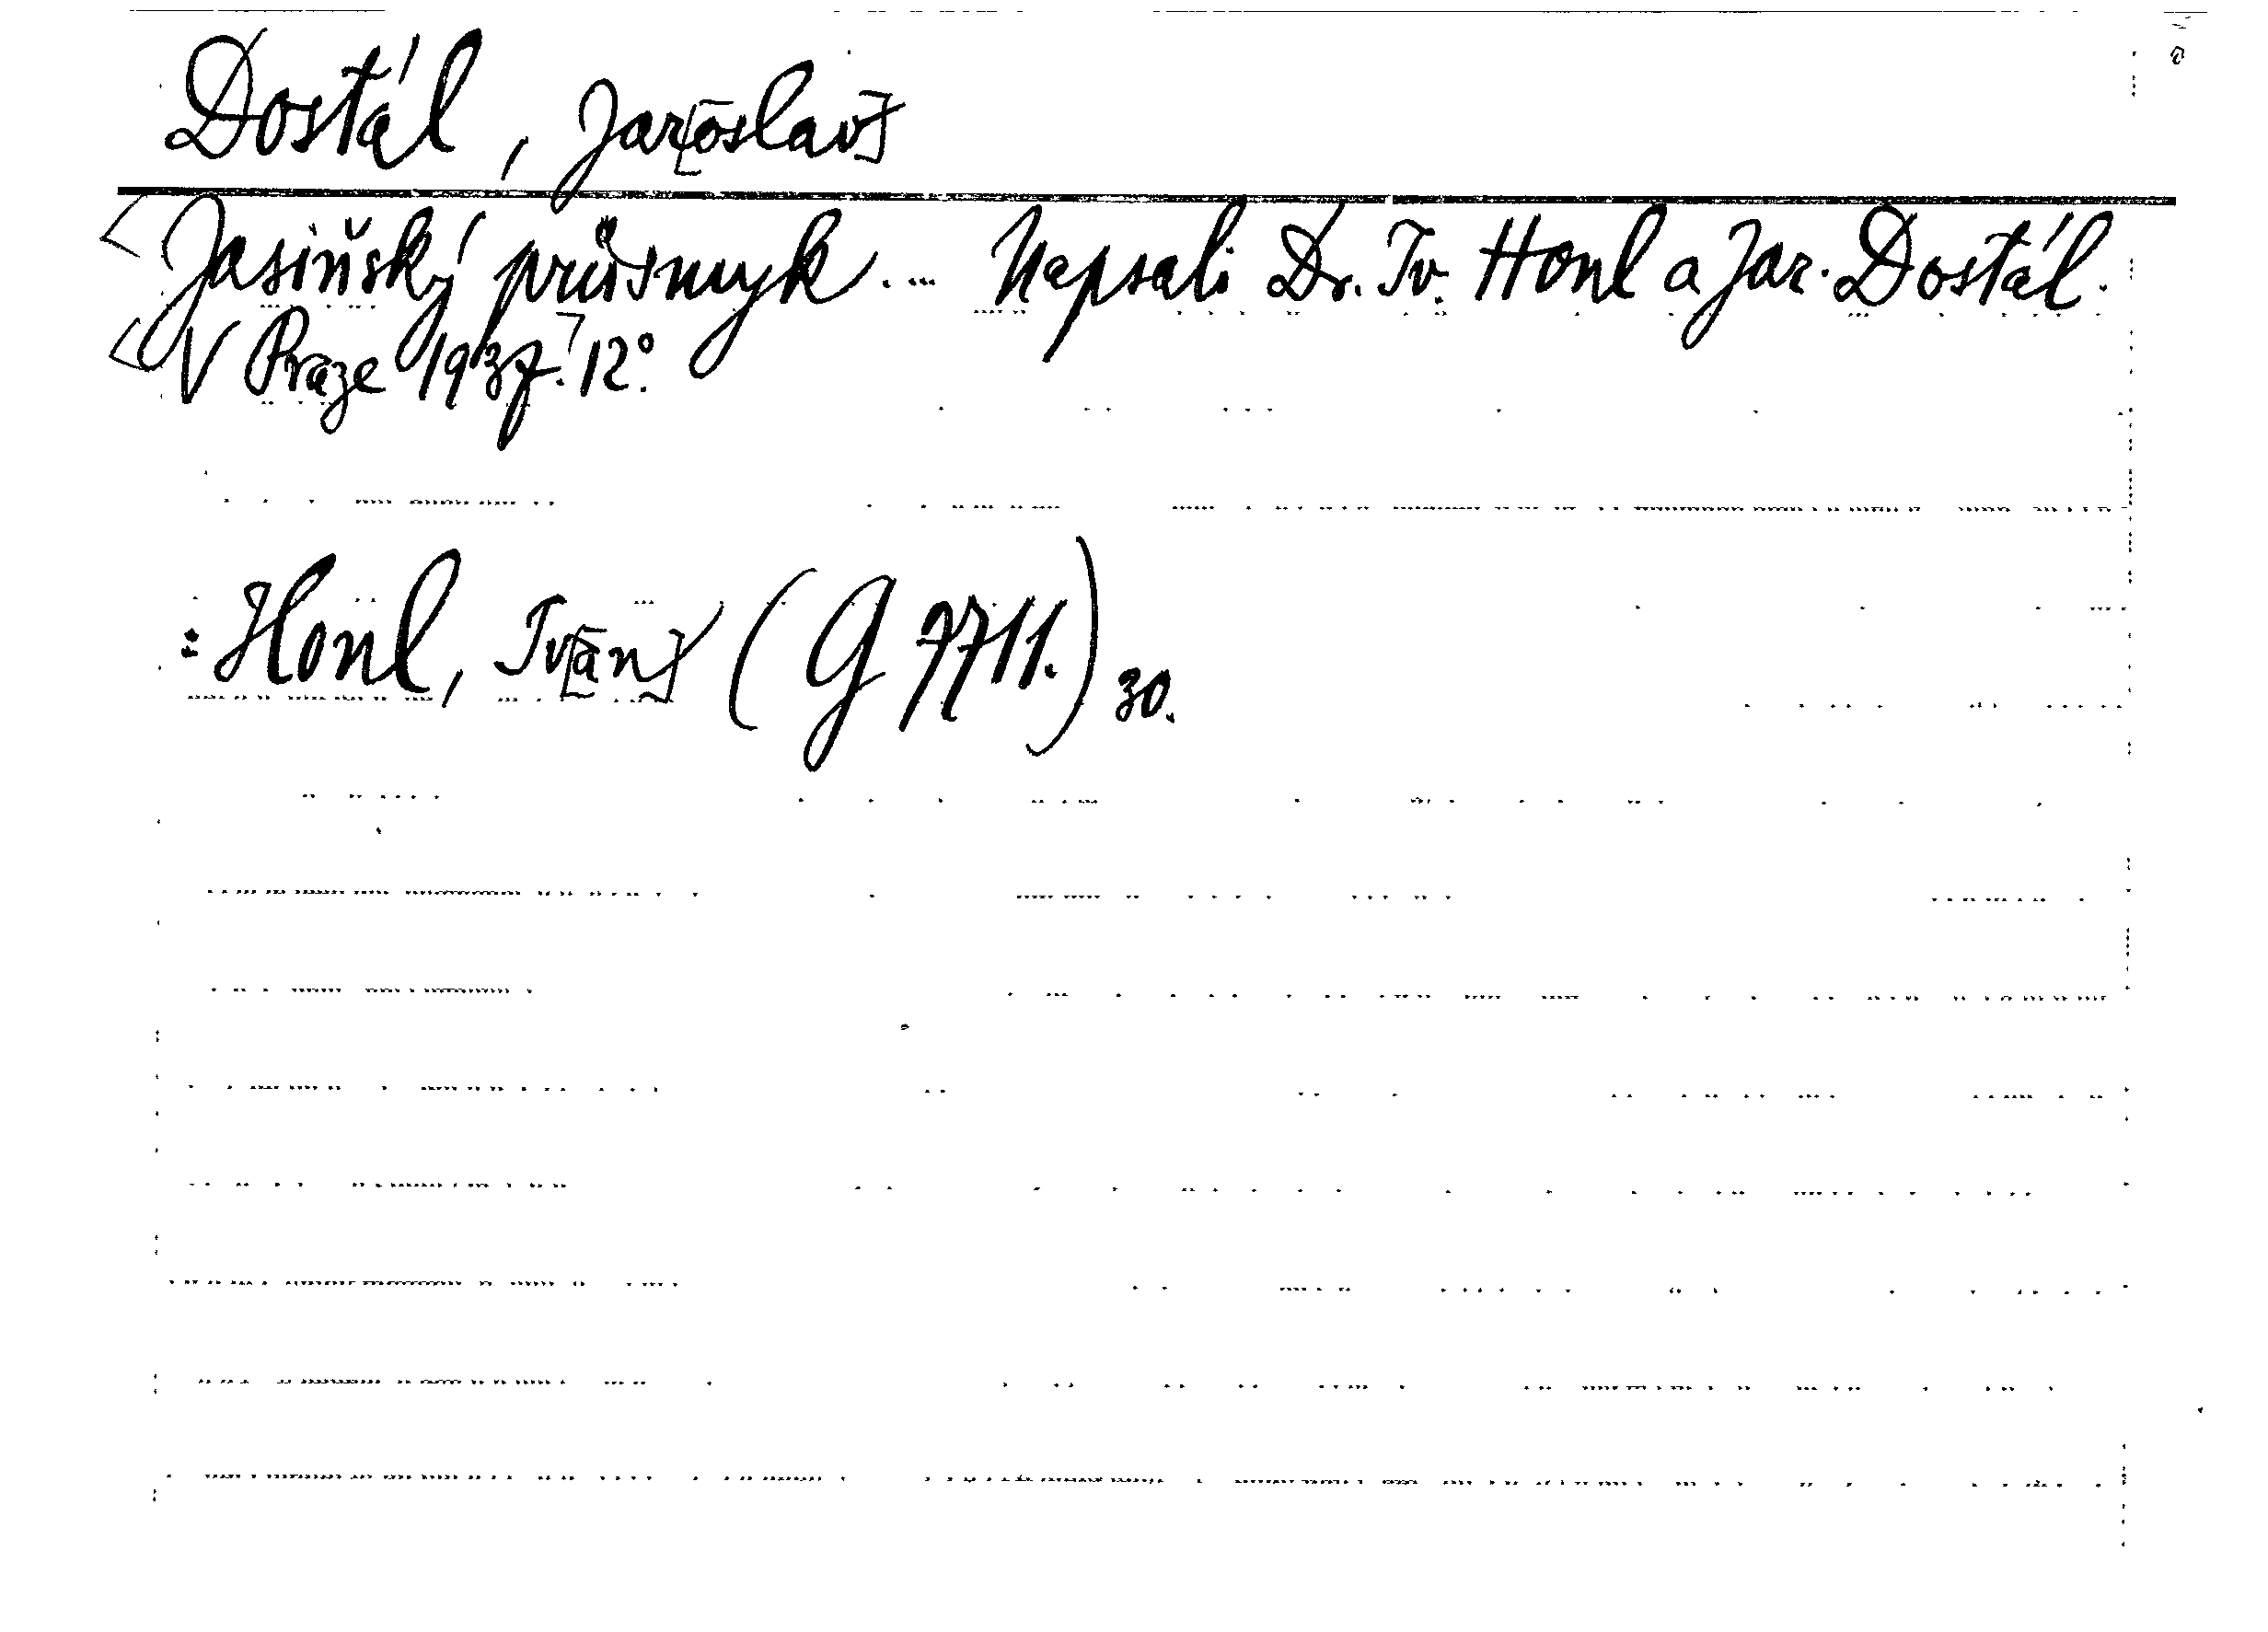 Dostál, Jar[oslav]
Jasiňský průsmyk. ... Napsali Dr. Iv. Honl a Jar. Dostál.
V Praze 1937. 12°.
: Honl, Iv[an] (G 7711.) 30.